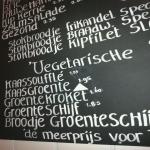 Gezond
Stokbroodje frikandel speci
Stokbroodje Brandw. spec
Stokbroodje kipfilet Sto
Vegetarische
Kaassoufflé 1.95
Kaasgroente
Groentekroket
Groenteschijf
Broodje Groenteschijf
de meerprijs voor